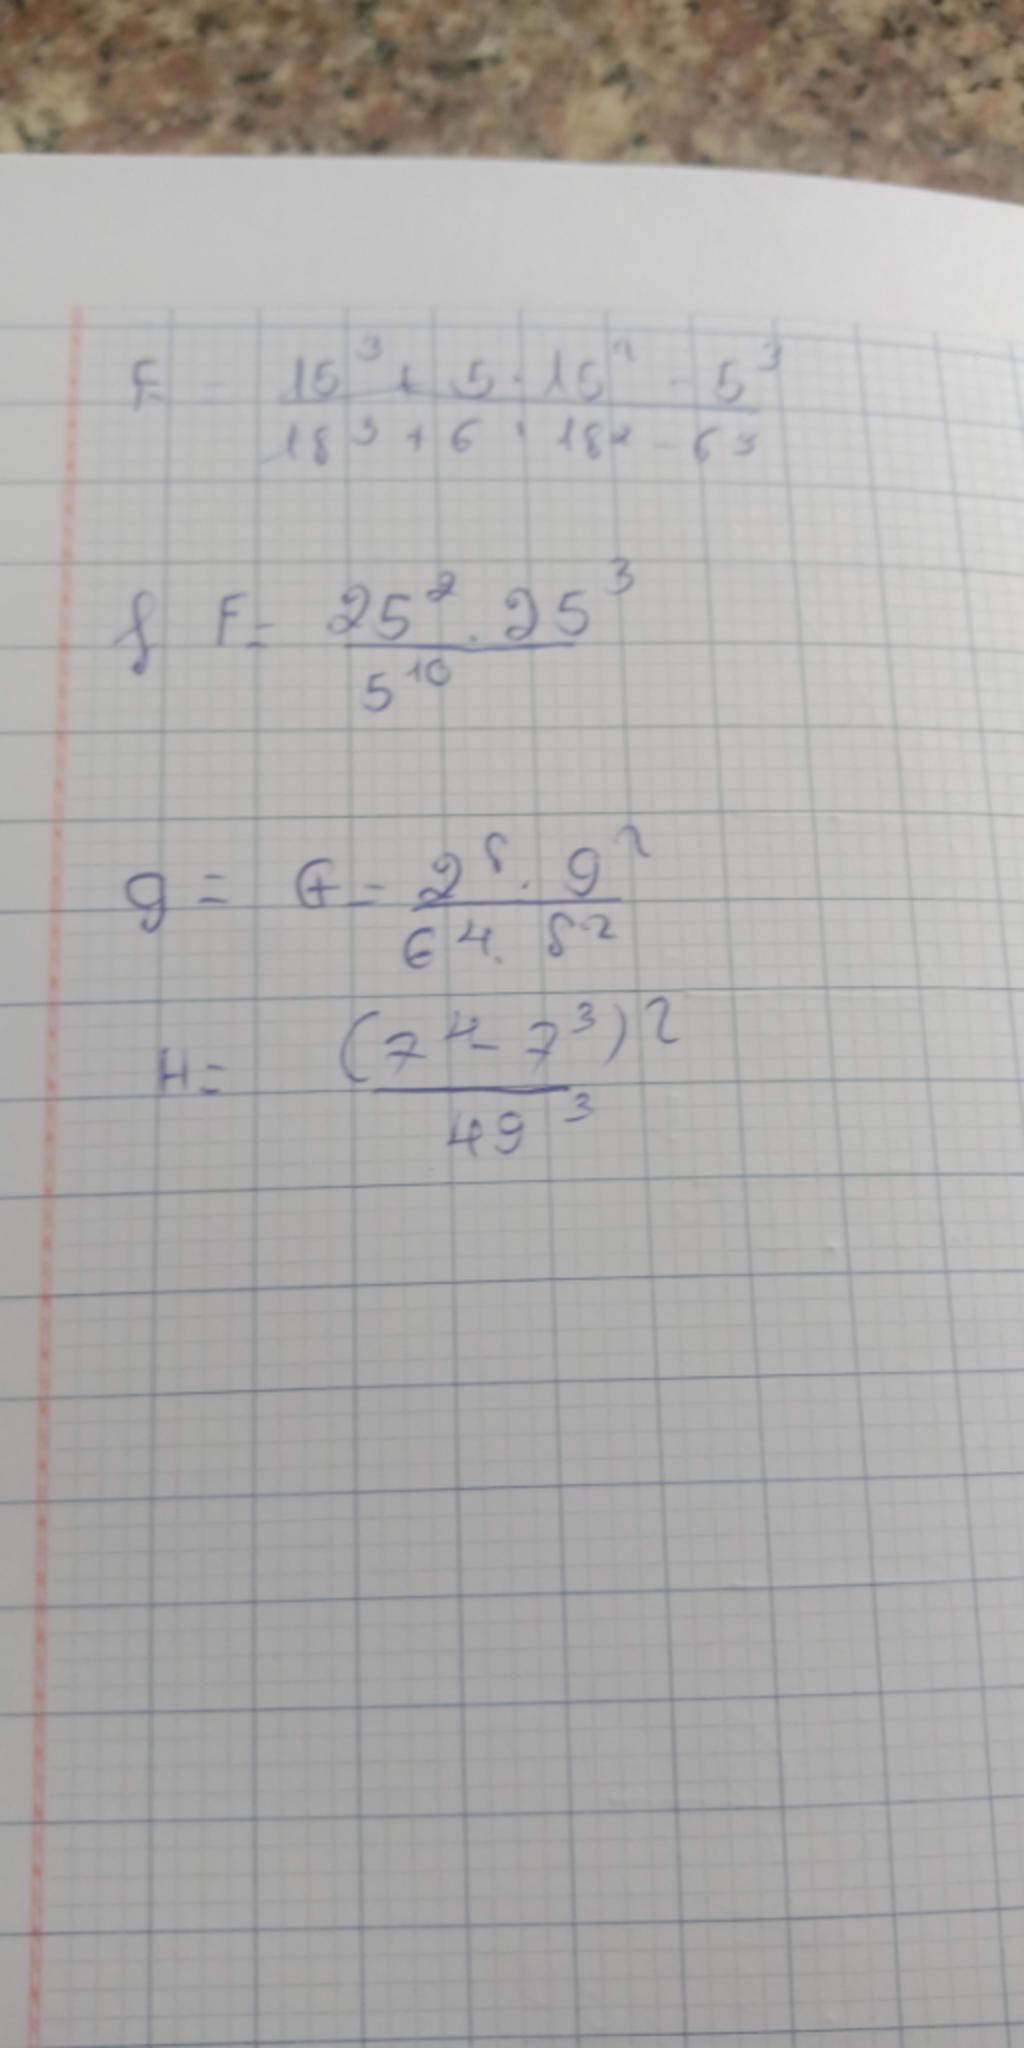 E = 15³ + 5 · 15² - 5³
18³ + 6 · 18² - 6³
f F = 25² · 25³
5¹⁰
g = G = 2⁸ · 9²
6⁴ · 8²
H = (7⁴ - 7³)²
49³